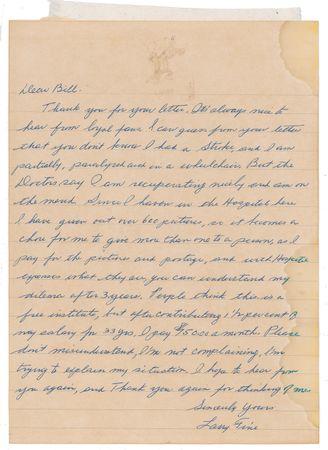 Dear Bill.
Thank you for your letter. It's always nice to
hear from loyal fans I can guess from your letter
that you don't know I had a stroke, and I am
partially, paralyzed and in a wheelchair. But the
Doctors, say I am recuperating nicely, and am on
the mend. Since I have in the Hospital here
I have given out over 600 pictures, so it becomes a
chore for me to give more than one to a person, as I
pay for the pictures and postage, and with Hospital
expenses what they are, you can understand my
after 3 years. People think this is a
free institute, but after contributing 1½ percent of
my salary for 33 yrs, I pay a month. Please
don't misunderstand, I'm not complaining, I'm
trying to explain my situation. I hope to hear from
you again, and Thank you again for thinking of me.
Sincerely Yours
Larry Fine